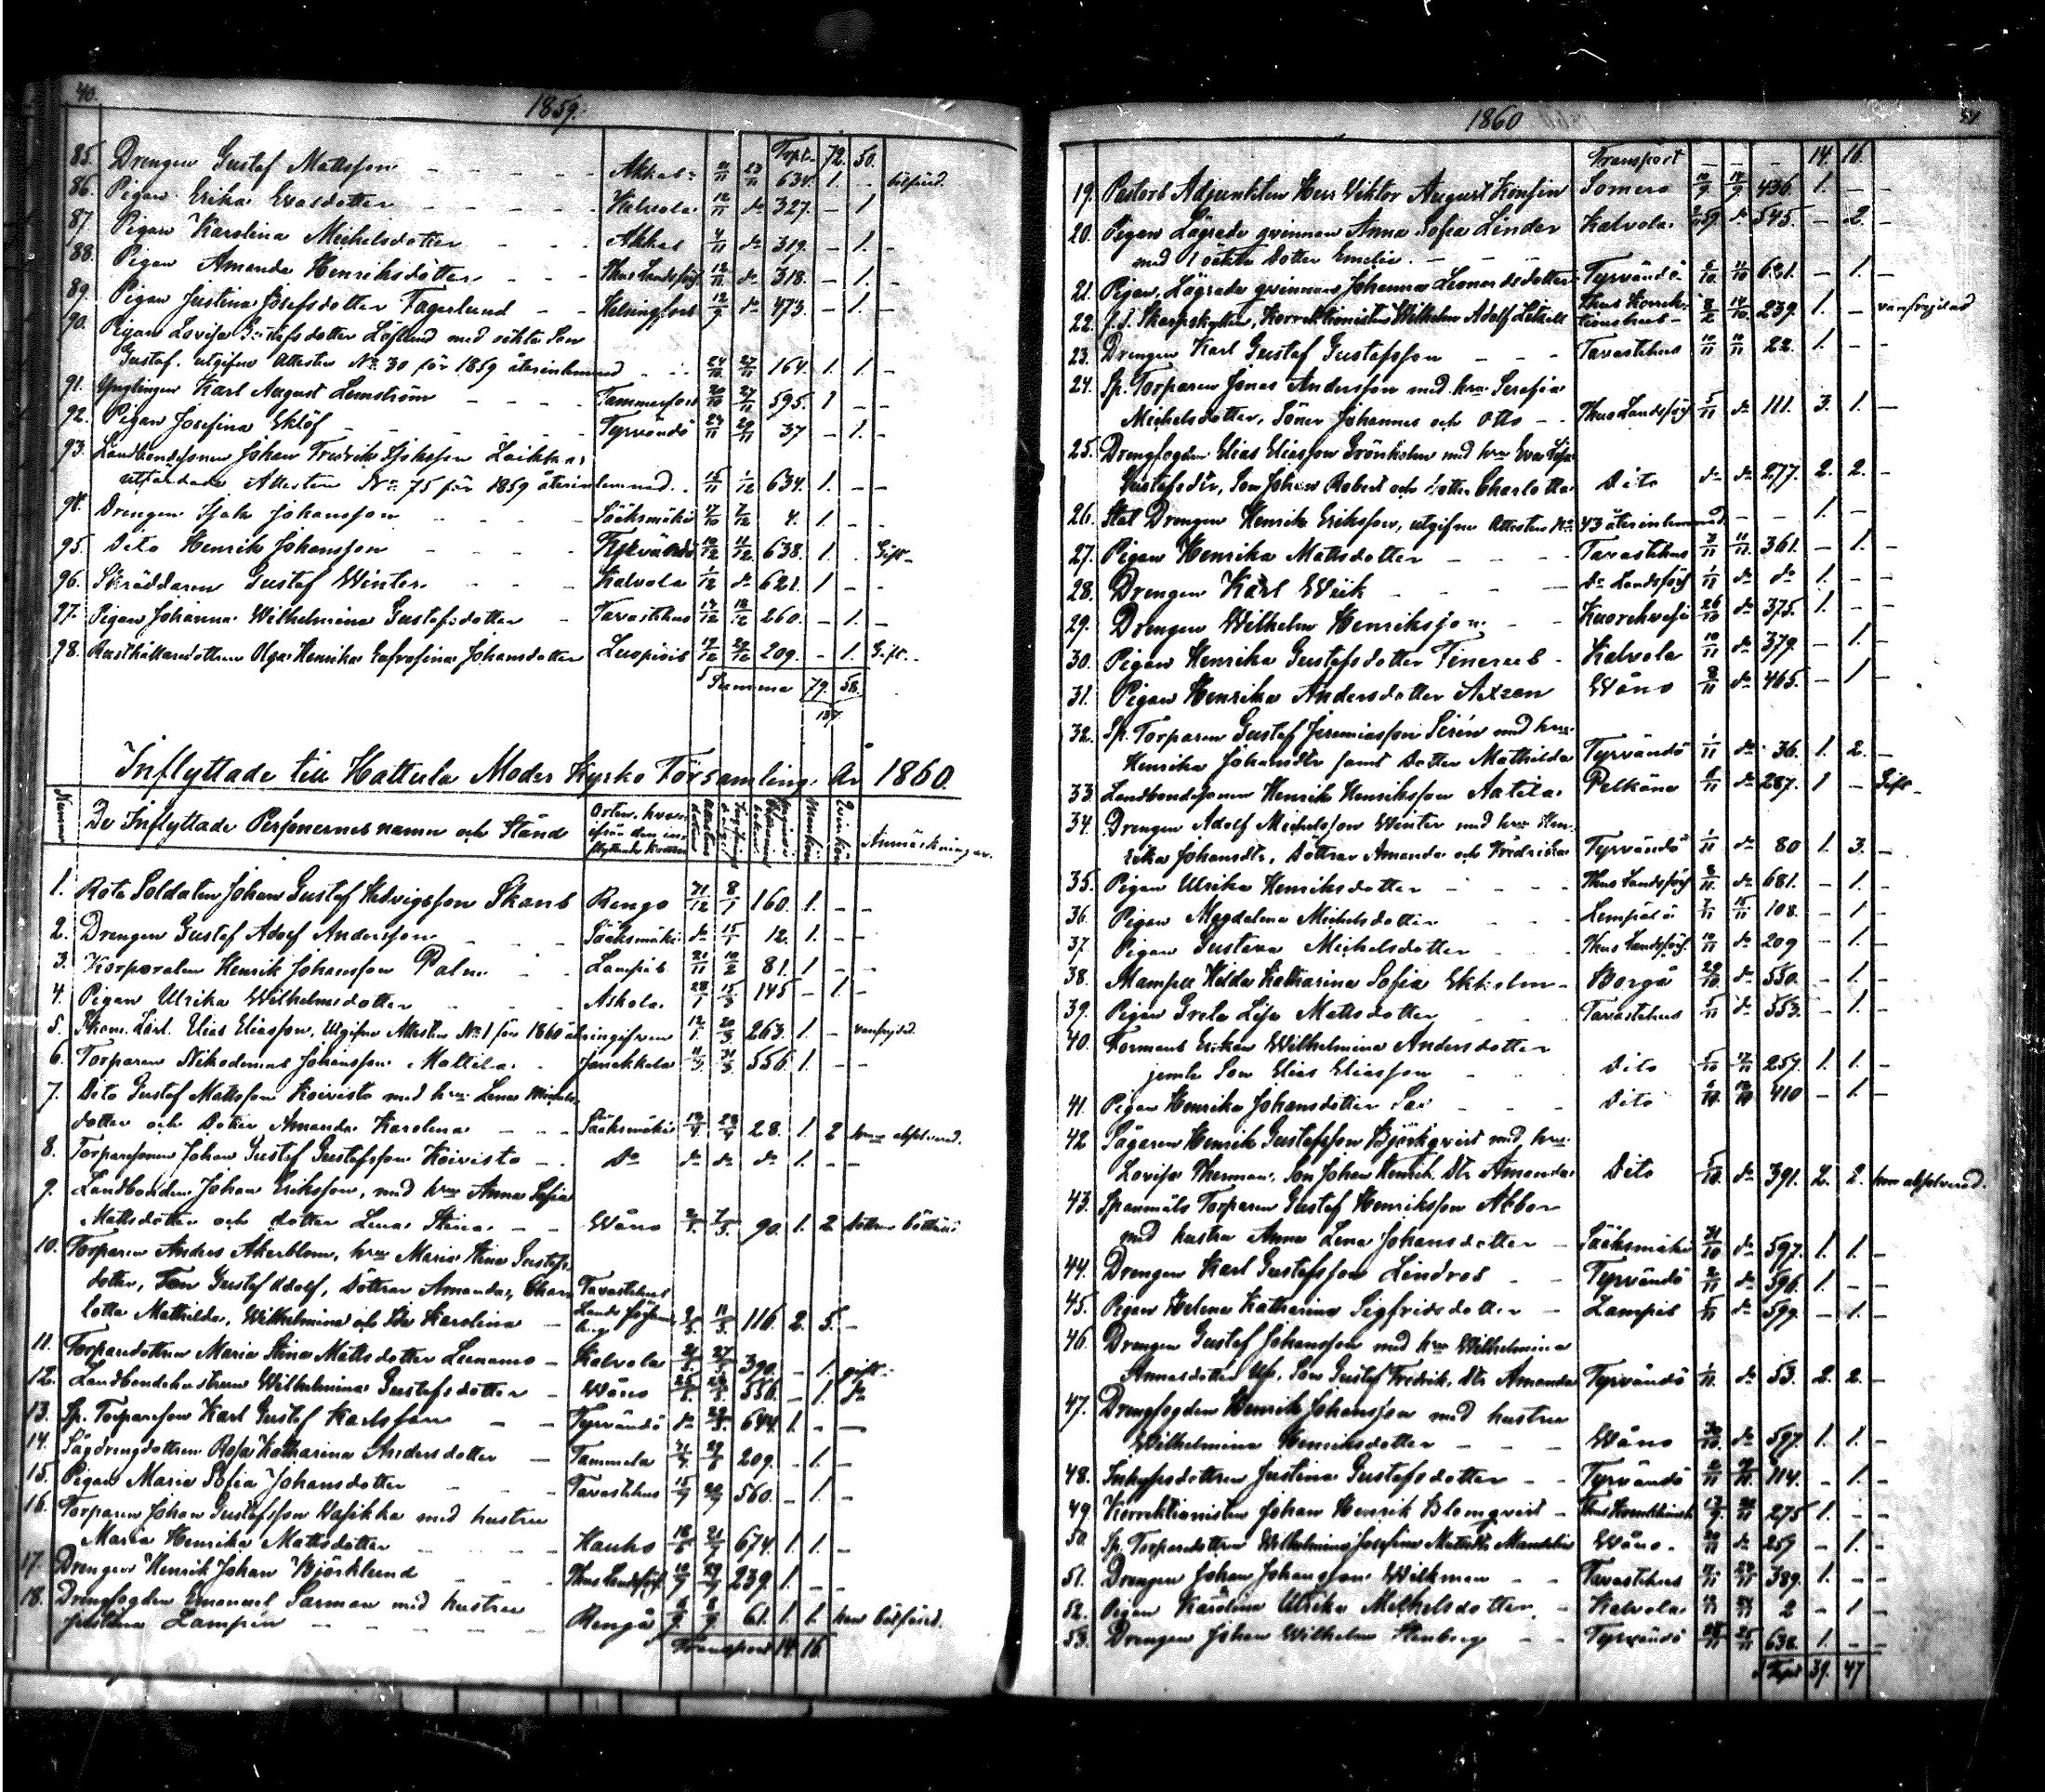 40.
1859.
Trpt. 72. 50.
85. Drengen Gustaf Mattsson - - - - Akkas 634. 1. -
86. Pigan Erika Evasdotter - - - - Kalvola 12/11 do 327. - 1
87. Pigan Karolina Michelsdotter - - - Akkas 4/11 do 319. - 1. -
88. Pigan Amanda Henriksdotter - - - Thus Landsförs 12/11 do 318. - 1. -
89. Pigan Justina Josefsdotter Fagerlund - - Helsingfors 12/9 do 473. - 1. -
90. Pigan Lovisa Gustafsdotter Löflund med oäkta Son
Gustaf. utgifne Attesten No 30 för 1859 återinlemnad 24/10 27/11 164. 1. 1 -
91. Ynglingen Karl August Lemström - - - - Tammerfors 20/10 27/11 595. 1 - -
92. Pigan Josefina Eklöf - - - - Tyrvändö 24/11 29/11 37 - 1. -
93. Landbondesonen Johan Fredrik Laikka
utfärdade Attesten No 75 för 1859 återinlemnad. 15/11 1/12 634. 1. - -
94. Drengen Isak Johansson - - - Sääksmäki 4/10 7/12 4. 1. - -
95. Dito Henrik Johansson - - - Tyrvändö 10/12 11/12 638. 1. Gift -
96. Skräddaren Gustaf Winter - - - Kalvola 1/12 do 621. 1 - -
97. Pigan Johanna Wilhelmina Gustafsdotter - Tavastehus 14/12 18/12 260. - 1. -
98. Rusthållaredottren Olga Henrika Eufrosina Johansdotter Luopiois 17/12 20/12 209. - 1. Gift -
Summa 79. 58.
137.
Inflyttade till Hattula Moder Kyrko Församling År 1860.
Nummer De Inflyttade Personernes namn och Stånd Orten, hvarifrån den inflyttade kommer Mankön Qvinkön Anmärkningar.
1. Rote Soldaten Johan Gustaf Hedvigsson Skans Rengo 31/12 8/1 160. 1. - -
2. Drengen Gustaf Adolf Andersson - - - Sääksmäki do 15/1 12. 1. - -
3. Korporalen Henrik Johansson Palm - - Lampis 21/11 12/2 81. 1 - -
4. Pigan Ulrika Wilhelmsdotter - - - Askola 28/1 15/3 145 - 1. -
5. Elias Eliasson, Utgifne Attesten No 1 för 1860 återingifven 12/1 20/3 263. 1 - vanfrejdad.
6. Torparen Nikodemus Johansson Mattila - Janakkala 11/3 31/3 556. 1 - -
7. Dito Gustaf Mattsson Koivisto med hru Lena Michels
dotter och Dotter Amanda Karolina - - Sääksmäki 19/4 23/4 28. 1. 2
8. Torparesonen Johan Gustaf Gustafsson Koivisto - - Do do do do 1. - -
9. Landbonden Johan Eriksson, med hru Anna Sofia
Mattsdotter och dotter Lena Stina - - Wåno 7/5 90. 1. 2
10. Torparen Anders Åkerblom, hru Maria Stina Gustafs
dotter, Son Gustaf Adolf, Döttrar Amanda, Char Tavastehus
lotta Mathilda, Wilhelmina och Ida Karolina - Lands församling 11/5 116. 2. 5. -
11. Torparedottren Maria Stina Mattsdotter Lunamo - Kalvola 27/5 390. - 1. gift -
12. Landbondehustrun Wilhelmina Gustafsdotter - Wåno 556. - 1. do
13. Sp. Torpareson Karl Gustaf Karlsson - - Tyrvändö do 644. 1. - -
14. Sågdrengdottren Rosa Katharina Andersdotter - Tammela 209. - 1. -
15. Pigan Maria Sofia Johansdotter - - Tavastehus 15/7 560. - 1. -
16. Torparen Johan Gustafsson Wasikka med hustru
Maria Henrika Mattsdotter - - - Hauho 674. 1. 1. -
17. Drengen Henrik Johan Björklund - - - Thus Landsförs 239. 1. - -
18. Drengfogden Emanuel Sarman med hustru
Justina Lampén - - - - Rengo 61. 1. 1.
Transport 14. 16.
1860
41
Transport - - - 14. 16.
19. Pastors Adjunkten Herr Viktor August Konsin Somero 10/9 14/9 436. 1. - -
20. Pigan Lägrade qvinnan Anna Sofia Linder Kalvola do 545. - 2. -
med oäkta Dotter Emelie. - - -
21. Pigan, Lägrade qvinnan Johanna Leonardsdotter Tyrvändö 6/10 11/10 621. - 1. -
22. f.d. Skarpskytten, Korrektionisten Wilhelm Adolf Litzell Thus Korrektionshus 8/2 14/10 239. 1. - vanfrejdad
23. Drengen Karl Gustaf Gustafsson - - - Tavastehus 10/11 10/11 22. 1. - -
24. Sp. Torparen Jonas Andersson med hru Serafia
Michelsdotter, Söner Johannes och Otto - - Thus Landsförs 5/11 do 111. 3. 1. -
25. Drengfogden Elias Eliasson Grönholm med hru Eva Lisa
Gustafsdr, Son Johan Robert och dotter Charlotta Dito do do 277. 2. 2. -
26. Stat Drengen Henrik Eriksson, utgifne Attesten No 43 återinlemnad - - 1. -
27. Pigan Henrika Mattsdotter - - - Tavastehus 3/11 11/11 361. - 1. -
28. Drengen Karl Wiik - - - do Landsförs 1/11 do do 1. - -
29. Drengen Wilhelm Henriksson - - Kuorehvesi 26/10 do 375. 1. - -
30. Pigan Henrika Gustafsdotter Finerus - Kalvola 10/11 do 379. - 1. -
31. Pigan Henrika Andersdotter Axzen Wåno 8/11 do 465. - 1 -
32. Sp. Torparen Gustaf Jeremiasson Sirén med hru
Henrika Johansdtr samt Dotter Mathilda Tyrvändö 1/11 do 36. 1. 2. -
33. Landbondesonen Henrik Henriksson Aatila Pelkäne 6/11 do 287. 1 - Gift -
34. Drengen Adolf Michelsson Winter med hru Hen
rika Johansdtr, Döttrar Amanda och Fredrika Tyrvändö 1/11 do 80 1. 3. -
35. Pigan Ulrika Henriksdotter - - - Thus Landsförs 8/11 do 681. - 1. -
36. Pigan Magdalena Michelsdotter - - Lempälä 7/11 15/11 108. - 1. -
37. Pigan Gustava Michelsdotter - - Thus Landsförs. 10/11 do 209 - 1. -
38. Mamsell Hilda Katharina Sofia Ekholm - Borgå 29/10 do 550. - 1. -
39. Pigan Greta Lisa Mattsdotter - - Tavastehus 5/11 do 553. - 1. -
40. Formans Enkan Wilhelmina Andersdotter
jemte Son Elias Eliasson - - Dito 257. 1. 1. -
41. Pigan Henrika Johansdotter - - - Dito 410 - 1. -
42 Sågaren Henrik Gustafsson Björkqvist med hru
Lovisa Therman, Son Johan Henrik, Dtr Amanda Dito 5/10 do 391. 2. 2. hon absolverad.
43. Spannmåls Torparen Gustaf Henriksson Abbor
med hustru Anna Lena Johansdotter - Sääksmäki 31/10 do 597. 1. 1. -
44. Drengen Karl Gustafsson Lindros - - Tyrvändö 2/11 do 596. 1. - -
45. Pigan Helena Katharina Sigfridsdotter - Lampis do 599. - 1. -
46. Drengen Gustaf Johansson med hru Wilhelmina
Annasdotter, Son Gustaf Fredrik, Dtr Amanda Tyrvändö 1/11 do 53. 2. 2. -
47. Drengfogden Henrik Johansson med hustru
Wilhelmina Henriksdotter - - - Wåno 30/10 do 597. 1. 1. -
48. Inhysesdottren Justina Gustafsdotter - - Tyrvändö 114. - 1. -
49. Korrektionisten Johan Henrik Blomqvist - 275 1. - -
50. Sp. Torparedottren Wilhelmina Josefina Mattsdtr Mandelin Wåno. do 259 - 1. -
51. Drengen Johan Johansson Wilkman - - Tavastehus 389. 1. - -
52. Pigan Karolina Ulrika Michelsdotter - Kalvola 2 - 1 -
53. Drengen Johan Wilhelm Stenberg - - Tyrvändö 25/11 638. 1. - -
Trpt 39. 47